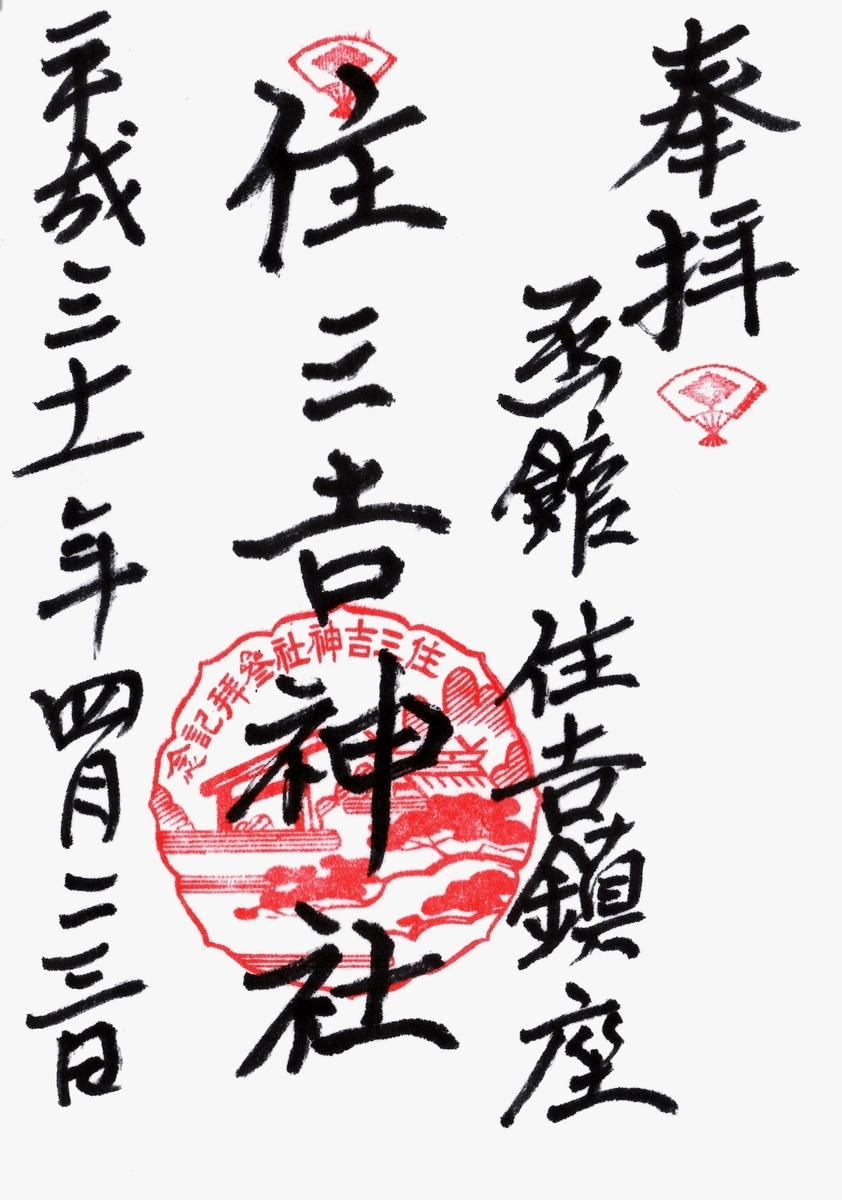 奉拝
函館住吉鎮座
住三吉神社
住三吉神社參拝記念
平成三十一年四月二三日